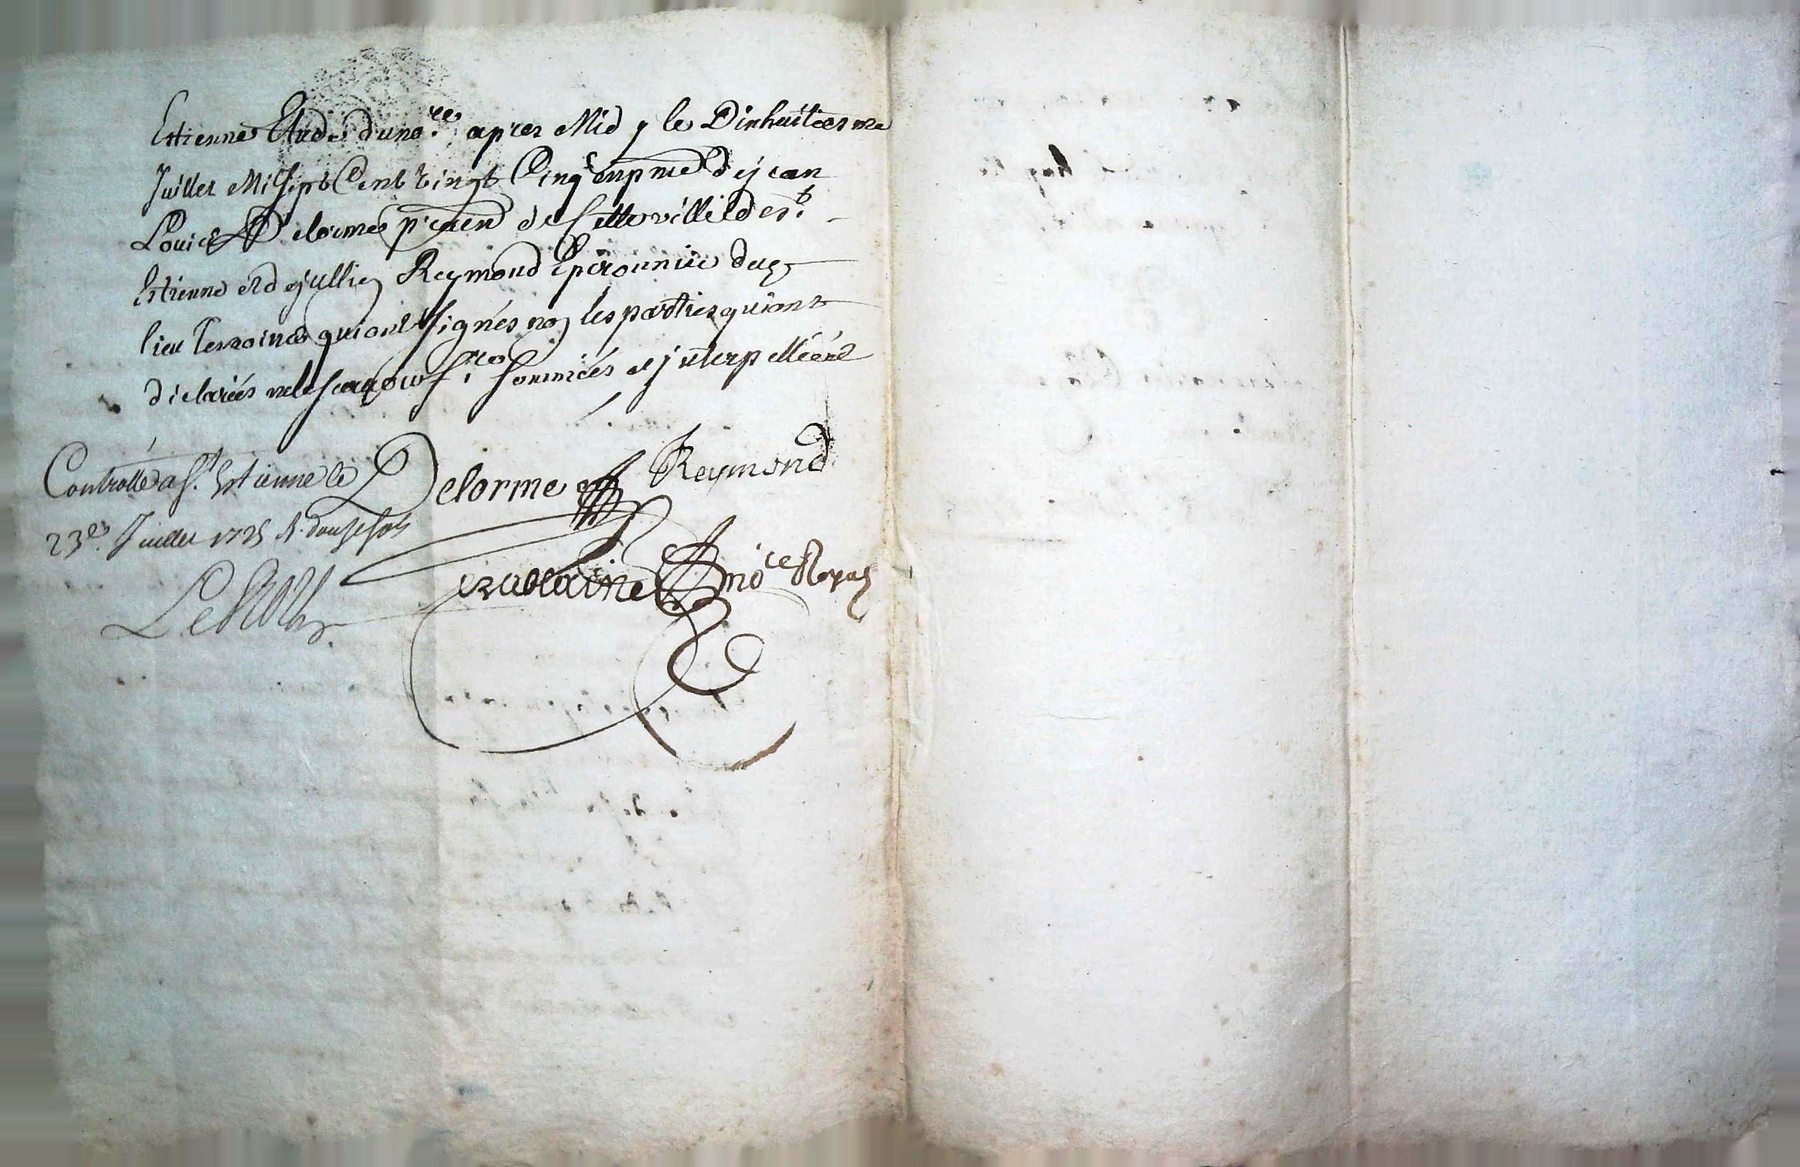 Estienne Etude du no.re apres Midy le Dixhuitiesme
Juillet Mil Sept Cent Vingt Cinq en pnce de Jean
Louis Delorme p de Cette ville de St.
Estienne et de Jullien Reymond Eperonnier dud
lieu Tesmoins qui ont Signés non les parties qui ont
declarés ne le Scavoir f.re Sommées et interpellées
Controllé a St. Estienne le
23e. Juillet 1725 R. douze sols
Delorme Reymond
no.re Royal